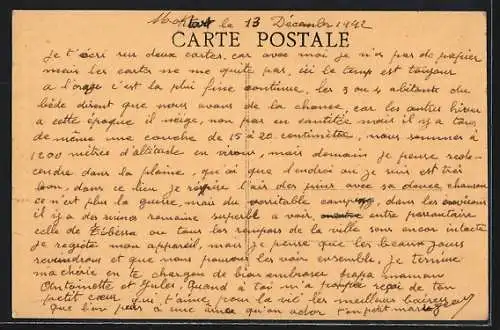 le 13 Décember 1942
CARTE POSTALE
Je t'écri sur deux cartes, car avec moi je n'es pas de papier
mais les cartes ne me quite pas, ici le temp est toujour
a l'orage c'est la plui fine continue, les 3 ou 4 abitants du
bède disent que nous avons de la chance, car les autres hiver
a cette époque il neige, non pas en cantitée mais il y a tous
de même une couche de 15 à 20 centimètre, nous sommes à
1200 mètres d'altitude en virons, mais demain je pense redes-
cendre dans la plaine, quoi que l'endroi ou je suis est très
bon, dans ce lieu je respire l'air des pins avec sa douce chanson
ce n'est plus la guerre, mais du veritable camping, dans les environs
il y a des ruines romaine superbe a voir, entre
celle de Tébessa ou tous les remparts de la ville son encor intacte
Je regrète mon appareil, mais je pense que les beaux jours
reviendrons et que nous pouvons les voir ensemble. Je termine
ma chérie en te chargen de bien embrasser papa maman
Antoinette et Jules. Quand à toi m'a poupée reçoi de ton
petit cœur qui t'aime pour la vie les meilleur baisers
Que l'on peus a une amée qu'on ador ton petit mari